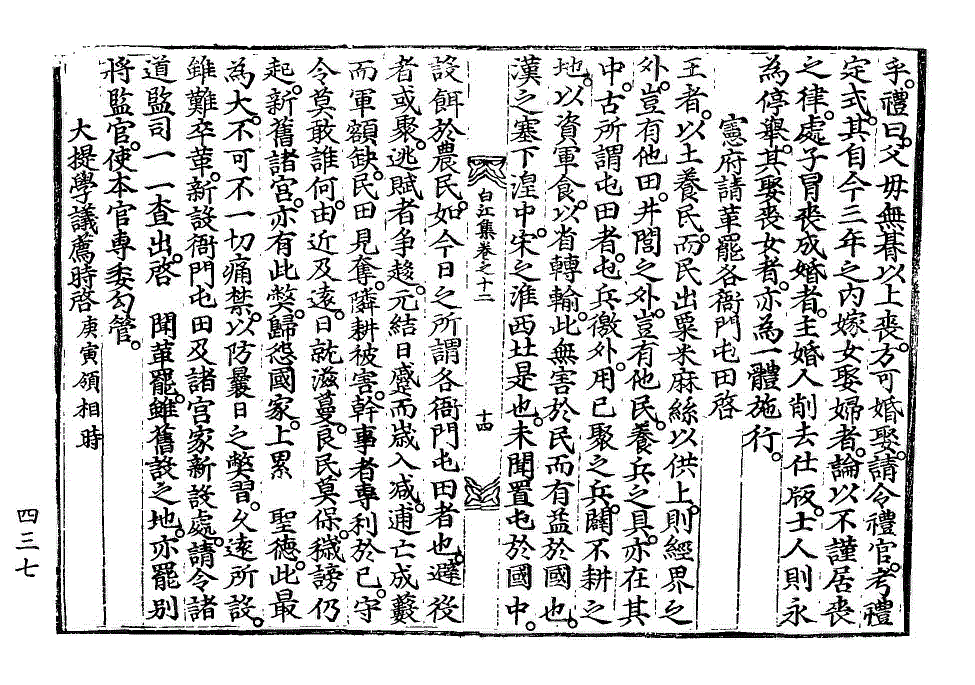 乎。禮曰。父毋無朞以上喪。方可婚娶。請令禮官。考禮
定式。其自今三年之內嫁女娶婦者。論以不謹居喪
之律。處子冒喪成婚者。主婚人削去仕版。士人則永
爲停擧。其娶喪女者。亦爲一體施行。
憲府請革罷各衙門屯田啓
王者。以土養民。而民出粟米麻絲以供上。則經界之
外。豈有他田。井閭之外。豈有他民。養兵之具。亦在其
中。古所謂屯田者。屯兵徼外。用已聚之兵。闢不耕之
地。以資軍食。以省轉輸。此無害於民而有益於國也。
漢之塞下湟中。宋之淮西北是也。未聞置屯於國中。
白江集卷之十二
十四
設餌於農民。如今日之所謂各衙門屯田者也。避役
者或聚。逃賦者爭趍。元結日盛而歲入减。逋亡成藪
而軍額缺。民田見奪。隣耕被害。幹事者專利於己。守
令莫敢誰何。由近及遠。日就滋蔓。良民莫保。穢謗仍
起。新舊諸宮。亦有此弊。歸怨國家。上累 聖德。此最
爲大。不可不一切痛禁。以防曩日之弊習。久遠所設。
雖難卒革。新設衙門屯田及諸宮家新設處。請令諸
道監司一一查出。啓 聞革罷。雖舊設之地。亦罷別
將監官。使本官專委勾管。
大提學議薦時啓 庚寅領相時
四三七